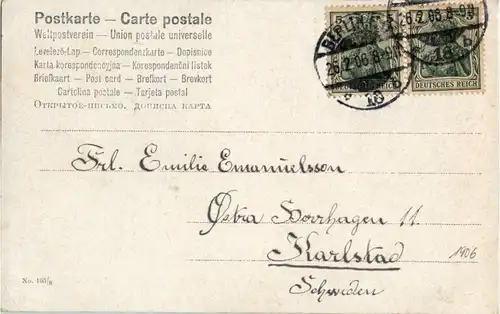 Postkarte – Carte postale
Weltpostverein – Union postale universelle
Levelező-Lap – Correspondenzkarte – Dopisnice
Karta korespondencyjna – Korespondenční lístek
Briefkaart – Post card – Brefkort – Brevkort
Cartolina postale – Tarjeta postal
ОТКРЫТОЕ-ПИСЬМО. ДОПИСНА КАРТА
26.2.06. 8-9N
26.2.06. 8-9N
18 b
18 b
DEUTSCHES REICH
Frl. Emilie Emanuelsson
Östra Torrhagen 11.
Karlstad
1906
Schweden
No. 165/8